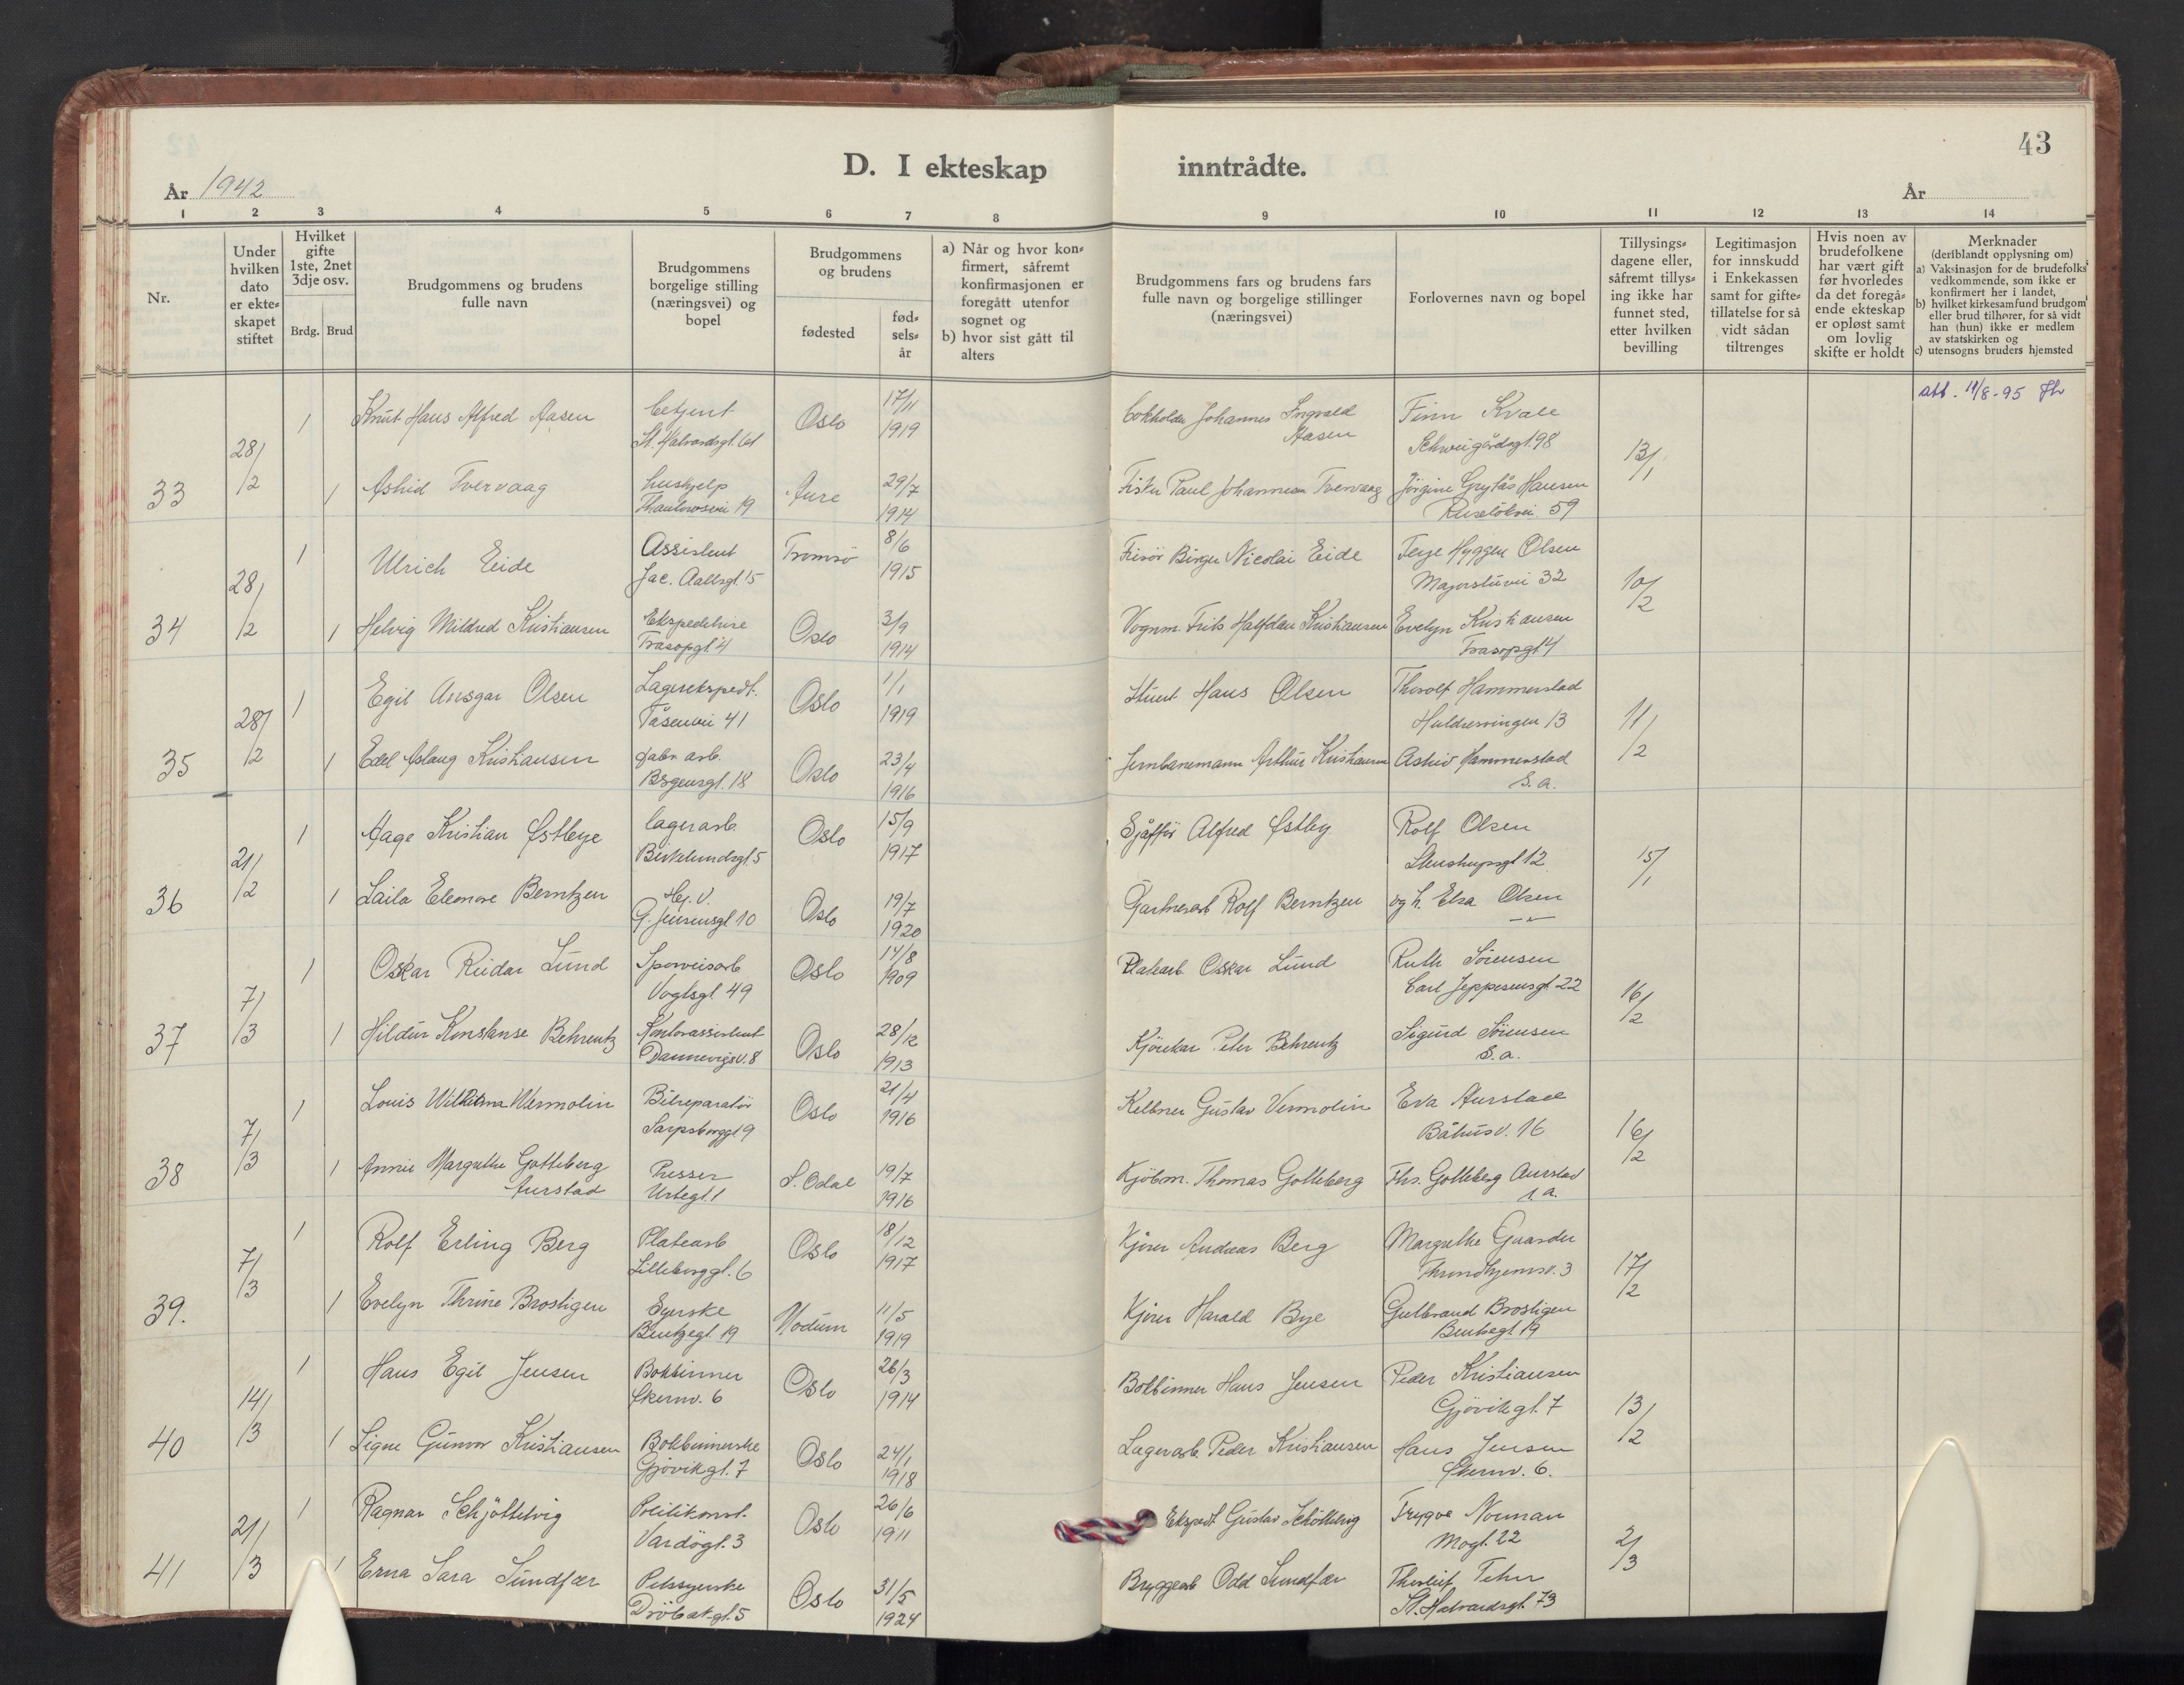 43
D. I ekteskap inntrådte.
År 1942
År
1 2 3 4 5 6 7 8 9 10 11 12 13 14
Nr.
Under hvilken dato er ekteskapet stiftet
Hvilket gifte 1ste, 2net 3dje osv.
Brdg. Brud
Brudgommens og brudens fulle navn
Brudgommens borgelige stilling (næringsvei) og bopel
Brudgommens og brudens
fødested
fødselsår
a) Når og hvor konfirmert, såfremt konfirmasjonen er foregått utenfor sognet og
b) hvor sist gått til alters
Brudgommens fars og brudens fars fulle navn og borgelige stillinger (næringsvei)
Forlovernes navn og bopel
Tillysingsdagene eller, såfremt tillysing ikke har funnet sted, etter hvilken bevilling
Legitimasjon for innskudd i Enkekassen samt for giftetillatelse for så vidt sådan tiltrenges
Hvis noen av brudefolkene har vært gift før hvorledes da det foregående ekteskap er opløst samt om lovlig skifte er holdt
Merknader
(deriblandt opplysning om)
a) Vaksinasjon for de brudefolks vedkommende, som ikke er konfirmert her i landet,
b) hvilket kirkesamfund brudgom eller brud tilhører, for så vidt han (hun) ikke er medlem av statskirken og
c) utensogns bruders hjemsted
33 28/2
1 Knut Hans Alfred Aasen Betjent St. Halvardsgt. 61 Oslo 17/11 1919 Bokholder Johannes Ingvald Aasen Finn Kvale Schweigårdsgt. 98 13/1
1 Astrid Tvervaag Hushjelp Thaulowsvei 19 Aure 29/7 1914 Fisker Paul Johannesen Tvervaag Jörgine Grytås Hansen Ruselökvei 59
34 28/2
1 Ulrich Eide Assistent Jac. Aallsgt. 15 Tromsö 8/6 1915 Frisör Birger Nicolai Eide Terje Hyggen Olsen Majorstuvei 32 10/2
1 Helvig Mildred Kristiansen Ekspeditrise Frasopgt. 4 Oslo 3/9 1914 Vognm. Frits Halfdan Kristiansen Evelyn Kristiansen Frasopgt 4
35 28/2
1 Egil Ansgar Olsen Lagerekspedt. Tåsenvei 41 Oslo 1/1 1919 Stuert Hans Olsen Thorolf Hammerstad Huldresvingen 13 11/2
1 Edel Aslaug Kristiansen Fabr. arb. Bergensgt. 18 Oslo 23/4 1916 Jernbanemann Arthur Kristiansen Astrid Hammerstad S. a.
36 21/2
1 Aage Kristian Østbye Lagerarb. Birkelundsgt. 5 Oslo 15/9 1917 Sjåffør Alfred Østby Rolf Olsen Stenstrupsgt 12 15/1
1 Laila Eleonore Berntzen Hj. v. G. Jensensgt 10 Oslo 19/7 1920 Gartnerarb Rolf Berntzen og h. Elsa Olsen
37 7/3
1 Oskar Reidar Lund Sporveisarb Vogtsgt 49 Oslo 14/8 1909 Platearb Oskar Lund Ruth Sörensen Carl Jeppesensgt 22 16/2
1 Hildur Konstanse Behrentz Kontorassistent Dannevigsv. 8 Oslo 28/12 1913 Kjörekar Peter Behrentz Sigurd Sörensen S. a.
38 7/3
1 Louis Wermolin Bilreparatör Sarpsborggt 9 Oslo 21/4 1916 Kellner Gustav Vermolin Eva Aurstad Båhusv. 16 16/2
1 Annie Margrethe Gotteberg Aurstad Presser Urtegt. 1 S. Odal 19/7 1916 Kjöbm. Thomas Gotteberg Ths. Gotteberg Aurstad s. a.
39. 7/3
1 Rolf Erling Berg Platearb Lilleborggt. 6 Oslo 18/12 1917 Kjörer Andreas Berg Margrethe Gaarder Throndhjemsv. 3 17/2
1 Evelyn Thrine Brostigen Syerske Bentzegt. 19 Modum 11/5 1919 Kjörer Harald Bye Gulbrand Brostigen Bentsegt 19
40 14/3
1 Hans Egil Jensen Bokbinner Økernv. 6 Oslo 26/3 1914 Bokbinner Hans Jensen Peder Kristiansen Gjövikgt. 7 13/2
1 Signe Gunvor Kristiansen Bokbinnerske Gjövikgt. 7 Oslo 24/1 1918 Lagerarb. Peder Kristiansen Hans Jensen Økernv. 6.
41 21/3
1 Ragnar Schjöttelvig Politikonst. Vardögt. 3 Oslo 26/6 1911 Ekspedt Gustav Schöttelvig Trygve Norman Mogt. 22 2/3
1 Erna Sara Sundfær Pelssyerske Dröbakgt. 5 Oslo 31/5 1924 Bryggearb Odd Sundfær Thorleif St. Halvardsgt. 73
att. 11/8-95